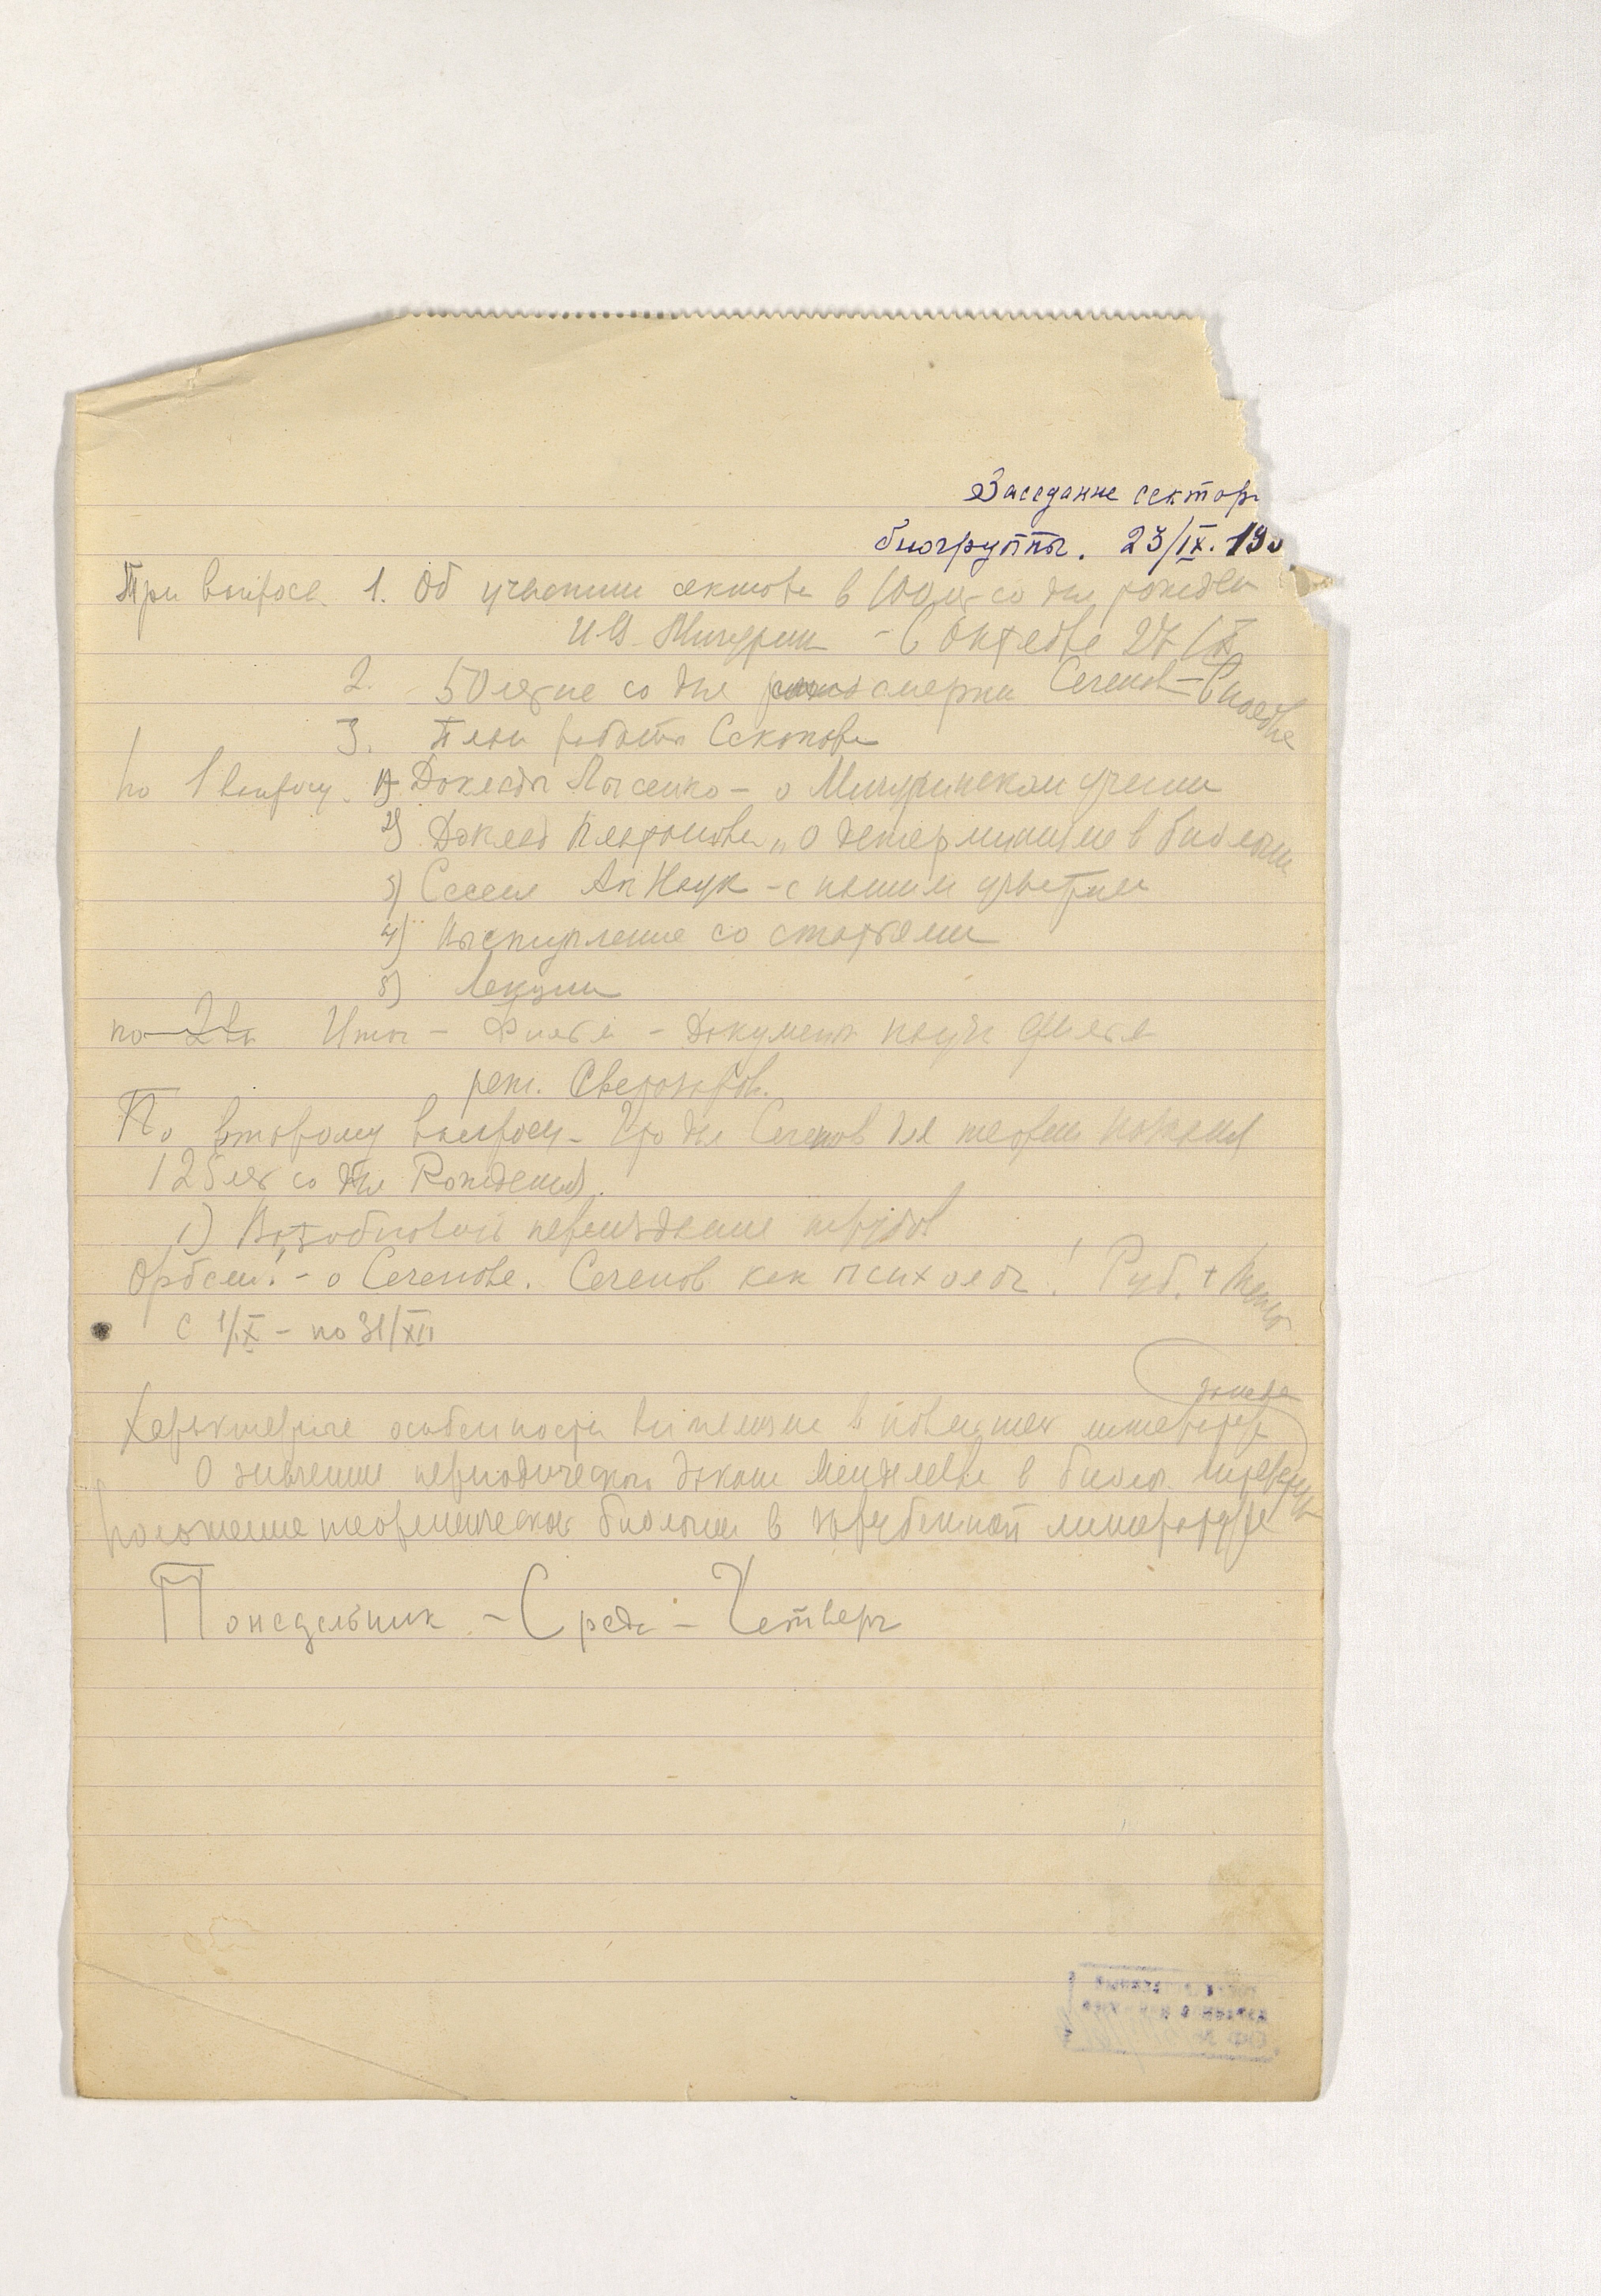 Заседание сектор
биогруппы. 23/IX. 195
Три вопроса 1. Об участии сектора в 100 л. со дня рожден
И.В. Мичурин – в Октябре 27/X
2. 50летие со дня смерти Сеченов – в ноябре
3. План работы Сектора
По 1 вопросу. 1) Доклады Лысенко – о Мичуринском учении
2) Доклад Платонова „О детерминизме в биологии
3) Сессия Ак Наук – с нашим участием
4) Выступление со статьями
5) Лекции
по 2 – – Документ науч
По второму вопросу – Что дал Сеченов для теории познания
125 лет со дня Рождения.
1) Возобновить переиздание трудов
Орбели! – о Сеченове. Сеченов как психолог! Руб. +
с 1/IX – по 31/XII
Характерные особенности витализма в новейшей литературе
О значении периодического закона Менделеева в биолог. литературе
Положение теоретической биологии в зарубежной литературе
Понедельник – Среда – Четверг